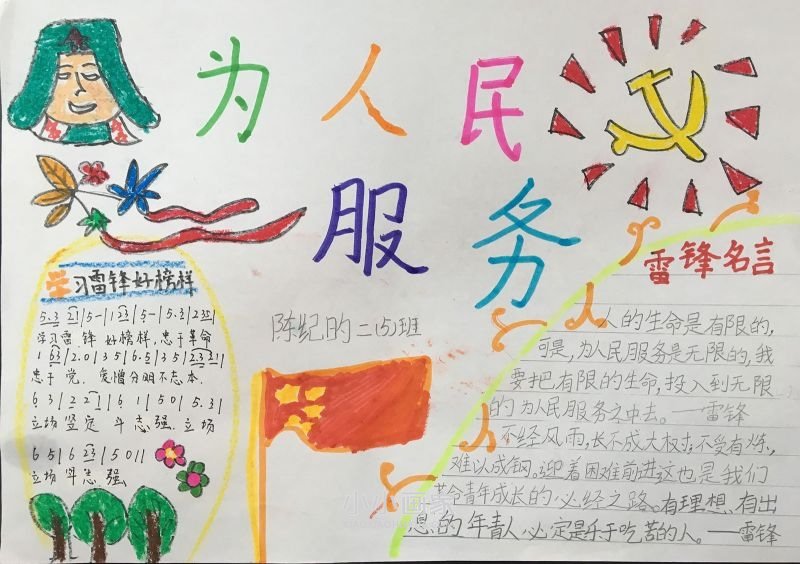 为人民
服务
学习雷锋好榜样
5.3 21|5-|123|5-|5.3|235|
学习雷锋好榜样,忠于革命
1 63|2.0|35|6.5|35|2321|
忠于党,爱憎分明不忘本
63|221|61|50|5.3|
立场坚定斗志强 立场
65|623|5011
立场斗志强
陈纪昀二(5)班
雷锋名言
人的生命是有限的,
可是,为人民服务是无限的,我
要把有限的生命,投入到无限
的为人民服务之中去。——雷锋
不经风雨,长不成大树;不受百炼,
难以成钢。迎着困难前进,这也是我们
革命青年成长的必经之路。有理想、有出
息的年青人必定是乐于吃苦的人。——雷锋